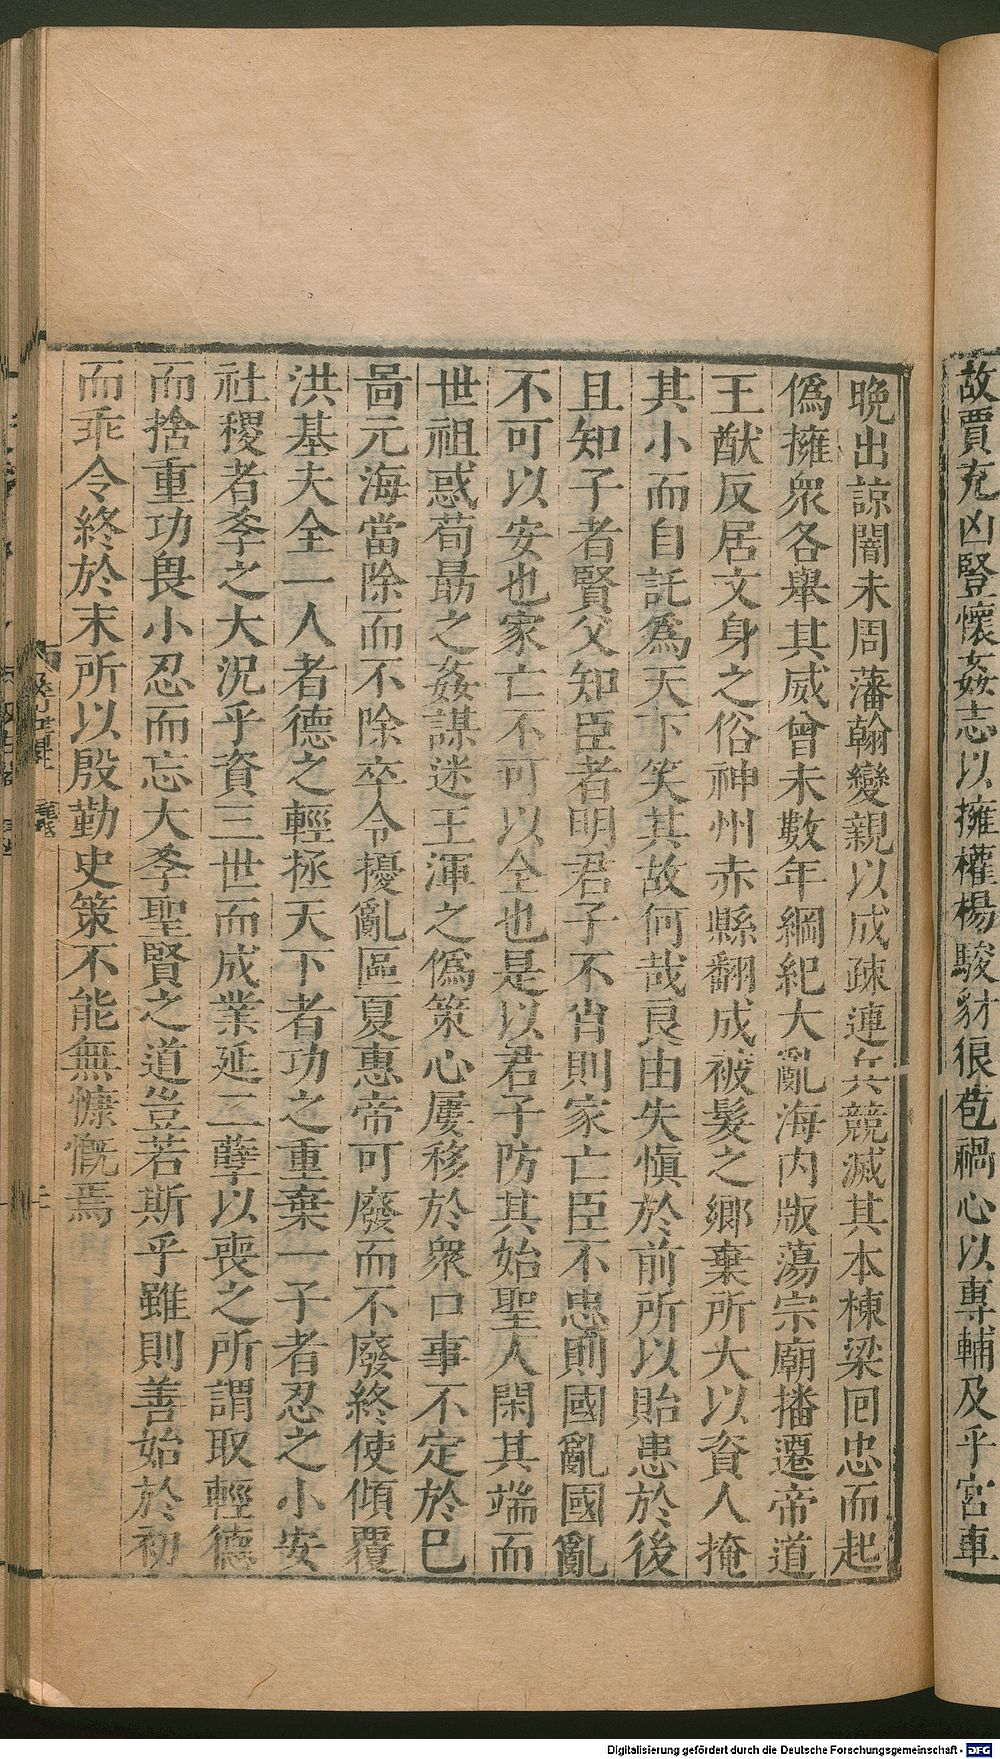 故賈充凶豎懷姦志以擁權楊駿豺狼苞禍心以專輔及乎宮車
晚出諒闇未周藩翰變親以成疎連兵競滅其本棟梁回忠而起
僞擁衆各舉其威曾未數年綱紀大亂海內版蕩宗廟播遷帝道
王猷反居文身之俗神州赤縣翻成被髮之鄉棄所大以資人掩
其小而自託爲天下笑其故何哉良由失愼於前所以貽患於後
且知子者賢父知臣者明君子不肖則家亡臣不忠則國亂國亂
不可以安也家亡不可以全也是以君子防其始聖人閑其端而
世祖惑荀勗之姦謀迷王渾之僞策心屢移於衆口事不定於已
啚元海當除而不除卒令擾亂區夏惠帝可廢而不廢終使傾覆
洪基夫全一人者德之輕拯天下者功之重棄一子者忍之小安
社稷者孝之大況乎資三世而成業延二孽以喪之所謂取輕德
而捨重功畏小忍而忘大孝聖賢之道豈若斯乎雖則善始於初
而乖令終於末所以殷勤史策不能無慷慨焉
Digitalisierung gefördert durch die Deutsche Forschungsgemeinschaft - DFG